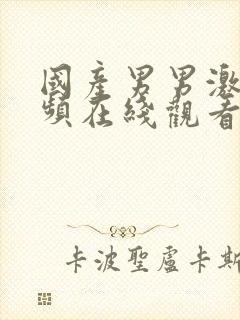 國產男男激
頻在綫觀看
卡波聖盧卡斯